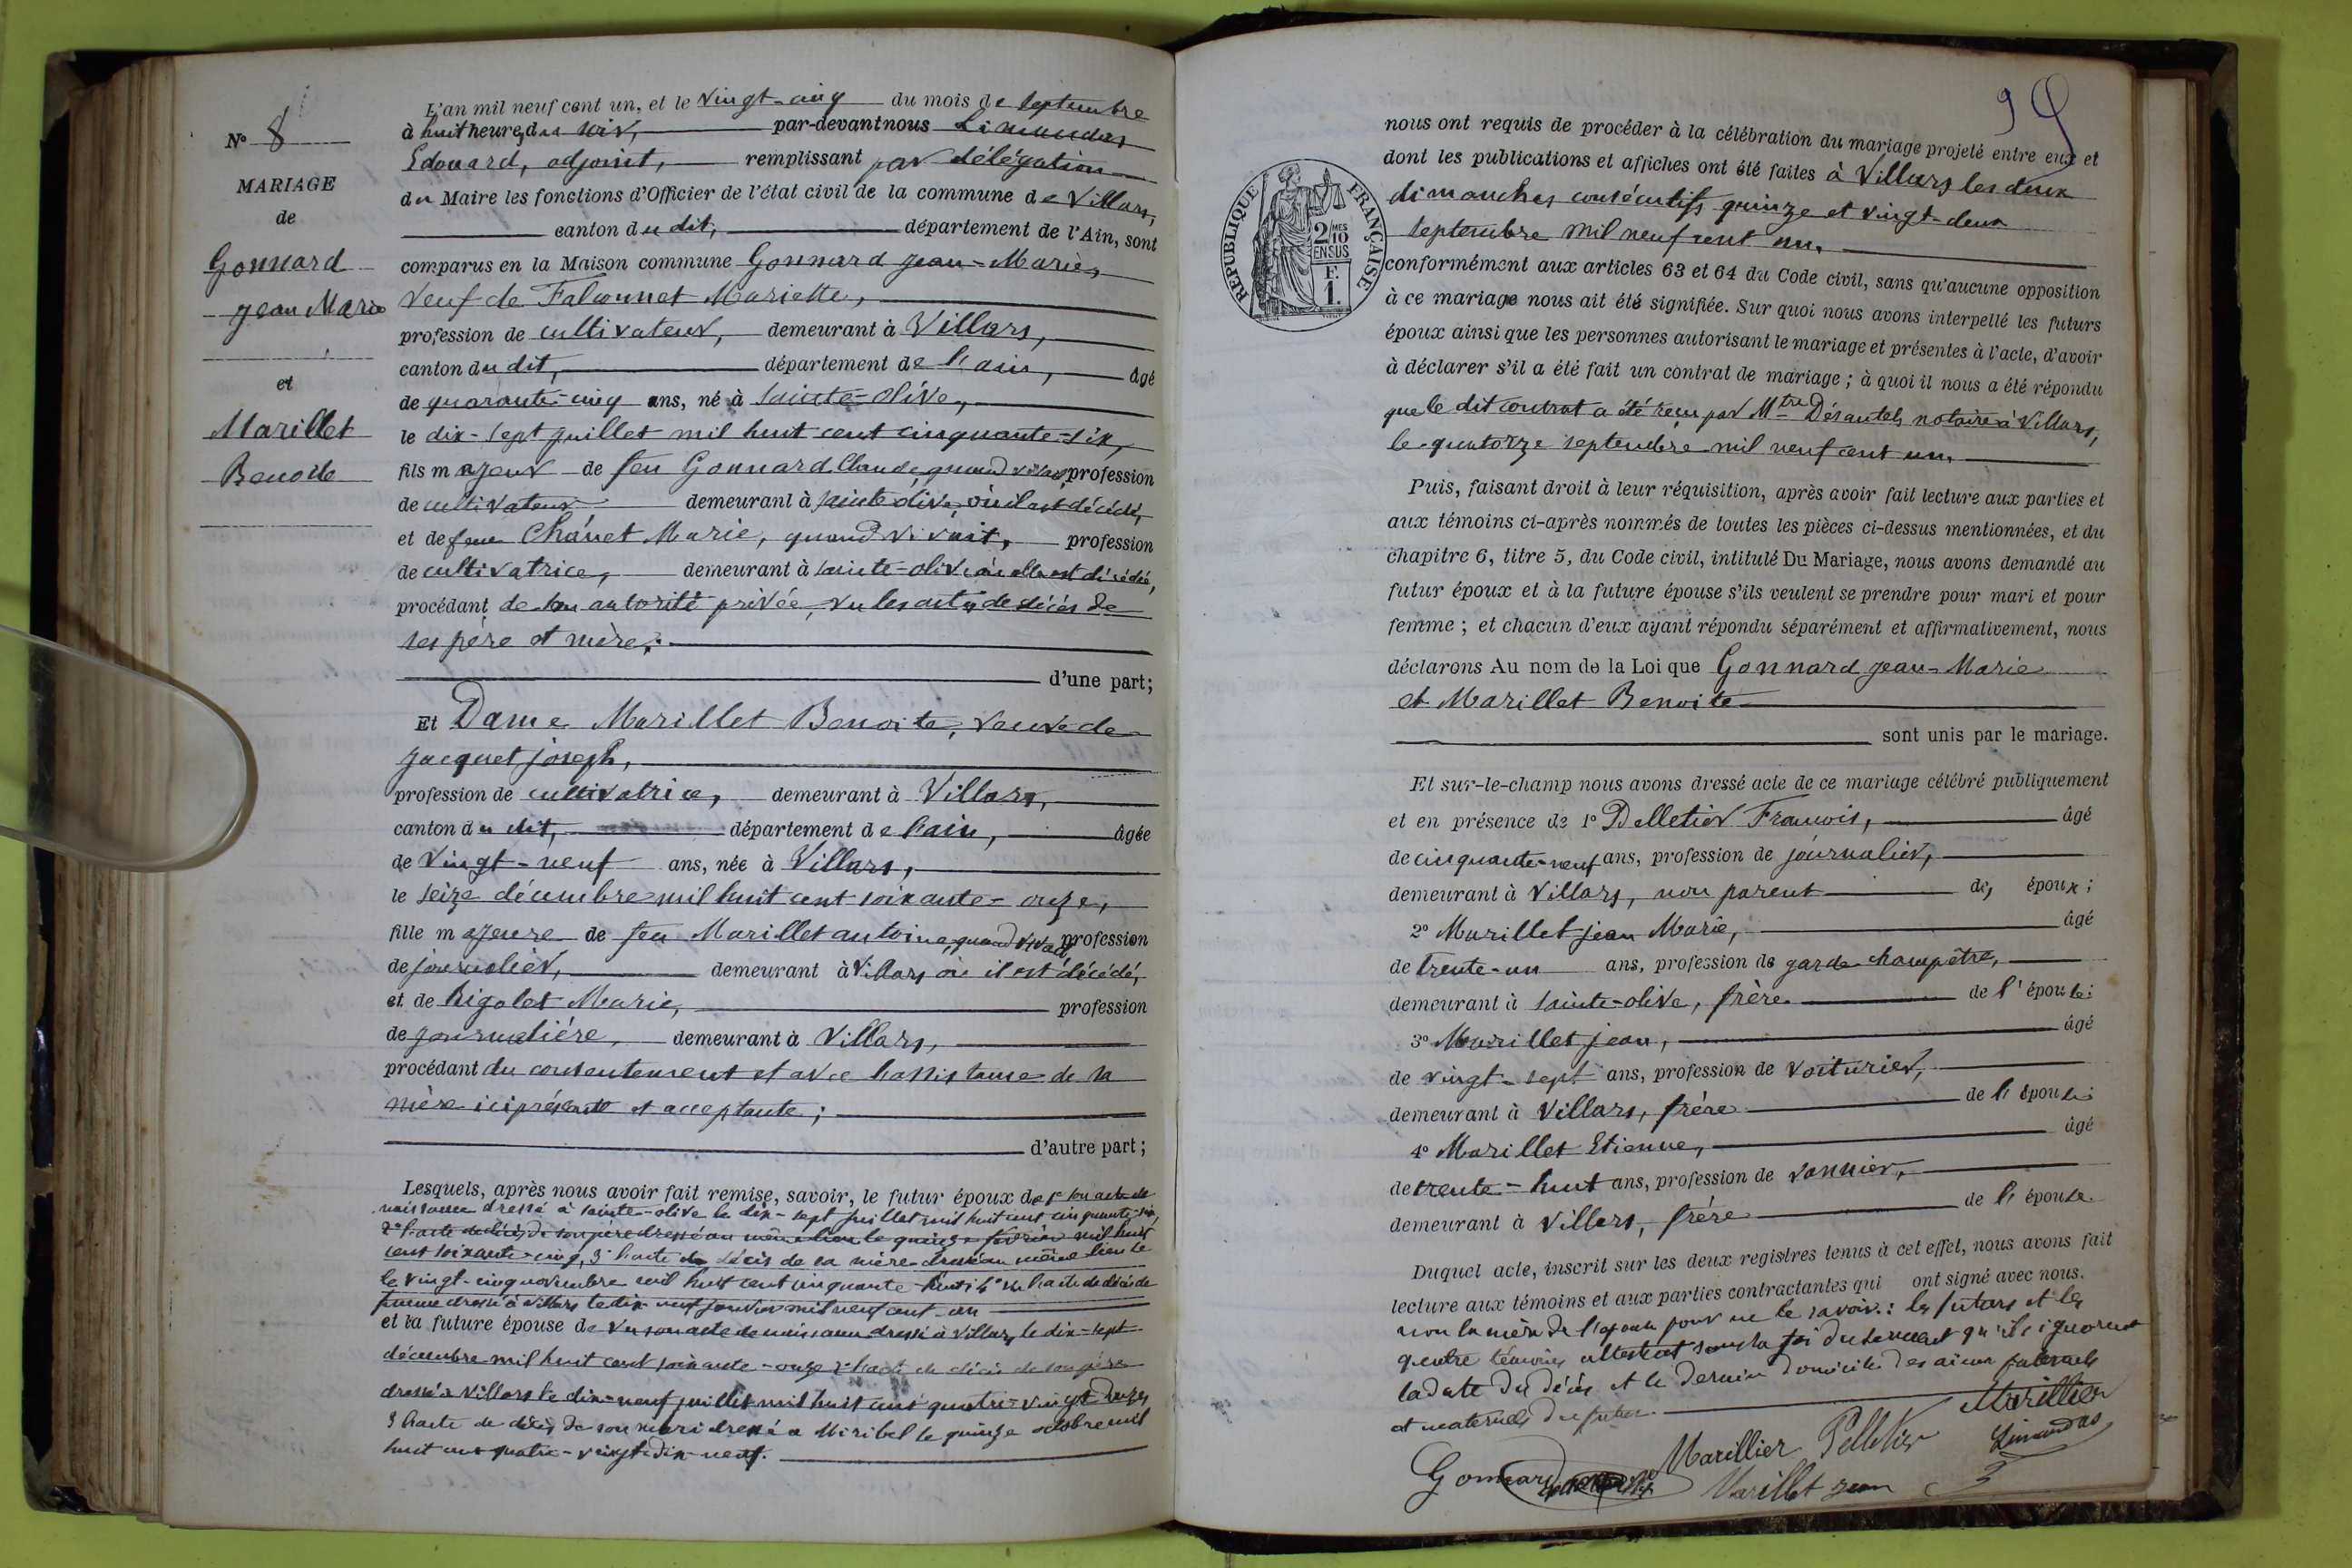 N° 8
MARIAGE
de
Gonnard
Jean Marie
et
Marillet
Benoîte
L'an mil neuf cent un, et le vingt-cinq du mois de septembre
à huit heures du soir, par-devant nous Limandas
Edouard, adjoint, remplissant par délégation
du Maire les fonctions d'Officier de l'état civil de la commune de Villars,
canton du dit, département de l'Ain, sont
comparus en la Maison commune Gonnard Jean-Marie,
veuf de Falconnet Mariette,
profession de cultivateur, demeurant à Villars,
canton du dit, département de l'ain, âgé
de quarante-cinq ans, né à Sainte-Olive,
le dix-sept juillet mil huit cent cinquante-six,
fils majeur de feu Gonnard Claude, quand vivait, profession
de cultivateur demeurant à Sainte-olive, où il est décédé,
et de feue Chanet Marie, quand vivait, profession
de cultivatrice, demeurant à Sainte-olive où elle est décédée,
procédant de son autorité privée, vu les actes de décès de
ses père et mère.
d'une part;
Et Dame Marillet Benoite, veuve de
Jacquet joseph,
profession de cultivatrice, demeurant à Villars,
canton du dit, département de l'ain, âgée
de vingt-neuf ans, née à Villars,
le seize décembre mil huit cent soixante-onze,
fille majeure de feu Marillet antoine, quand vivait profession
de journalier, demeurant à Villars où il est décédé,
et de Rigolet Marie, profession
de journalière, demeurant à Villars,
procédant du consentement et avec l'assistance de sa
mère ici présente et acceptante;
d'autre part;
Lesquels, après nous avoir fait remise, savoir, le futur époux de 1° son acte de
naissance dressé à Sainte-olive le dix-sept juillet mil huit cent cinquante-six,
2° l'acte de décès de son père dressé au même lieu le quinze février mil huit
cent soixante-cinq, 3° l'acte de décès de sa mère dressé au même lieu le
le vingt-cinq novembre mil huit cent cinquante-huit; 4° l'acte de décès de
femme dressé à Villars le dix-neuf janvier mil neuf cent-un
et la future épouse de vu son acte de naissance dressé à Villars le dix-sept
décembre mil huit cent soixante-onze 2° l'acte de décès de son père
dressé à Villars le dix-neuf juillet mil huit cent quatre-vingt douze,
3 l'acte de décès de son mari dressé à Miribel le quinze octobre mil
huit cent quatre-vingt-dix-neuf.
99
REPUBLIQUE FRANÇAISE
2/10 MES
EN SUS
F.
1.
nous ont requis de procéder à la célébration du mariage projeté entre eux et
dont les publications et affiches ont été faites à Villars les deux
dimanches consécutifs quinze et vingt-deux
septembre mil neuf cent un,
conformément aux articles 63 et 64 du Code civil, sans qu'aucune opposition
à ce mariage nous ait été signifiée. Sur quoi nous avons interpellé les futurs
époux ainsi que les personnes autorisant le mariage et présentes à l'acte, d'avoir
à déclarer s'il a été fait un contrat de mariage; à quoi il nous a été répondu
que le dit contrat a été reçu par Mtre Désautels notaire à Villars,
le quatorze septembre mil neuf cent un.
Puis, faisant droit à leur réquisition, après avoir fait lecture aux parties et
aux témoins ci-après nommés de toutes les pièces ci-dessus mentionnées, et du
chapitre 6, titre 5, du Code civil, intitulé Du Mariage, nous avons demandé au
futur époux et à la future épouse s'ils veulent se prendre pour mari et pour
femme; et chacun d'eux ayant répondu séparément et affirmativement, nous
déclarons Au nom de la Loi que Gonnard jean-Marie
et Marillet Benoite
sont unis par le mariage.
Et sur-le-champ nous avons dressé acte de ce mariage célébré publiquement
et en présence de 1° Pelletier François, âgé
de cinquante-neuf ans, profession de journalier,
demeurant à Villars, non parent des époux;
2° Marillet jean Marie, âgé
de trente-un ans, profession de garde-champêtre,
demeurant à Sainte-olive, frère de l'épouse;
3° Marillet jean, âgé
de vingt-sept ans, profession de voiturier,
demeurant à Villars, frère de l'épouse;
4° Marillet Etienne, âgé
de trente-huit ans, profession de vannier,
demeurant à Villars, frère de l'épouse
Duquel acte, inscrit sur les deux registres tenus à cet effet, nous avons fait
lecture aux témoins et aux parties contractantes qui ont signé avec nous.
non la mère de l'épouse pour ne le savoir: les futurs et les
quatre témoins attestent sous la foi du serment qu'ils ignorent
la date du décès et le dernier domicile des aïeux paternels
et maternels du futur.
Marillier
Gonnard Marillier Pelletier Limandas
Marillet jean